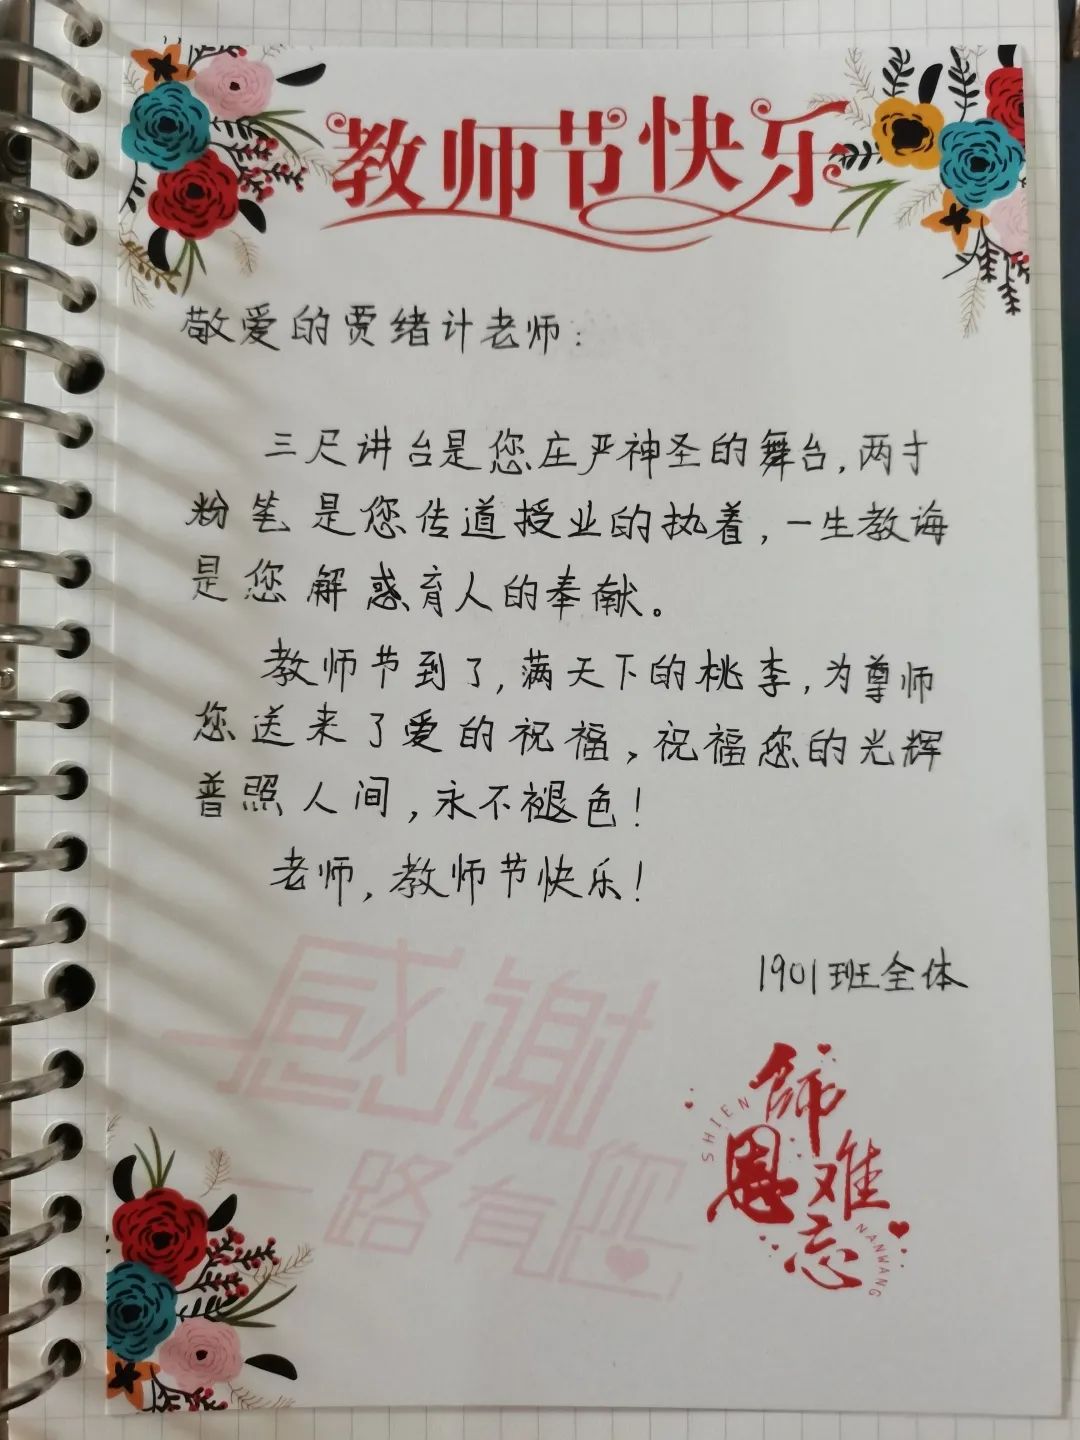 教师节快乐
敬爱的贾绪计老师：
三尺讲台是您庄严神圣的舞台，两寸
粉笔是您传道授业的执着，一生教诲
是您解惑育人的奉献。
教师节到了，满天下的桃李，为尊师
您送来了爱的祝福，祝福您的光辉
普照人间，永不褪色！
老师，教师节快乐！
1901班全体
感谢
一路有您
師恩难忘
SHIEN
NANWANG